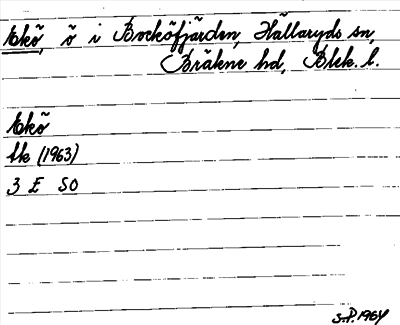 Ekö, ö i Bocköfjärden, Hällaryds sn,
Bräkne hd, Blek. l.
Ekö
Ek (1963)
3 E SO
S.P. 1964